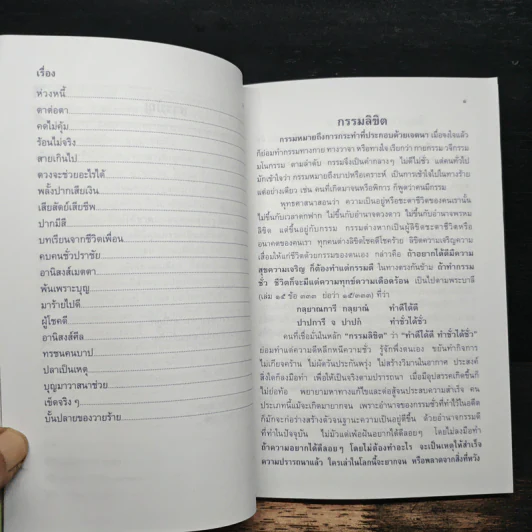 เรื่อง
ห่วงหนี้
ตาต่อตา
คดไม่คุ้ม
ร้อนไม่จริง
สายเกินไป
ดวงจะช่วยอะไรได้
พลั้งปากเสียเงิน
เสียสัตย์เสียชีพ
ปากมีสี
บทเรียนจากชีวิตเพื่อน
คบคนชั่วปราชัย
อานิสงส์เมตตา
พ้นเพราะบุญ
มาร้ายไปดี
ผู้โชคดี
อานิสงส์ศีล
ทรชนคนบาป
ปลาเป็นเหตุ
บุญมาวาสนาช่วย
เข็ดจริง ๆ
บั้นปลายของวายร้าย
กรรมลิขิต
กรรมหมายถึงการกระทำที่ประกอบด้วยเจตนา เมื่อจงใจแล้ว
ก็ย่อมทำกรรมทางกาย ทางวาจา หรือทางใจ เรียกว่า กายกรรม วจีกรรม
มโนกรรม ตามลำดับ กรรมจึงเป็นคำกลางๆ ไม่ดีไม่ชั่ว แต่คนทั่วไป
มักเข้าใจว่า กรรมหมายถึงบาปหรือเคราะห์ เป็นการเข้าใจไปในทางร้าย
แต่อย่างเดียว เช่น คนที่เกิดมาจนหรือพิการ ก็พูดว่าคนมีกรรม
พุทธศาสนาสอนว่า ความเป็นอยู่หรือชะตาชีวิตของคนเรานั้น
ไม่ขึ้นกับเวลาตกฟาก ไม่ขึ้นกับอำนาจดวงดาว ไม่ขึ้นกับอำนาจพรหม
ลิขิต แต่ขึ้นอยู่กับกรรม กรรมต่างหากเป็นผู้ลิขิตชะตาชีวิตหรือ
อนาคตของคนเรา ทุกคนต่างลิขิตโชคดีโชคร้าย ลิขิตความเจริญความ
เสื่อมให้แก่ชีวิตด้วยกรรมของตนเอง กล่าวคือ ถ้าอยากได้ดีมีความ
สุขความเจริญ ก็ต้องทำแต่กรรมดี ในทางตรงกันข้าม ถ้าทำกรรม
ชั่ว ชีวิตก็จะมีแต่ความทุกข์ความเดือดร้อน เป็นไปตามพระบาลี
(เล่ม ๑๕ ข้อ ๓๓๓ ย่อว่า ๑๕/๓๓๓) ที่ว่า
กลฺยาณการี กลฺยาณํ ทำดีได้ดี
ปาปการี จ ปาปกํ ทำชั่วได้ชั่ว
คนที่เชื่อมั่นในหลัก "กรรมลิขิต" ว่า "ทำดีได้ดี ทำชั่วได้ชั่ว"
ย่อมทำแต่ความดีหลีกหนีความชั่ว รู้จักพึ่งตนเอง ขยันทำกิจการ
ไม่เกียจคร้าน ไม่ผัดวันประกันพรุ่ง ไม่สร้างวิมานในอากาศ ประสงค์
สิ่งใดก็ลงมือทำ เพื่อให้เป็นจริงตามปรารถนา เมื่อมีอุปสรรคเกิดขึ้นก็
ไม่ย่อท้อ พยายามหาทางแก้ไขและต่อสู้จนประสบความสำเร็จ คน
ประเภทนี้แม้จะเกิดมายากจน เพราะอำนาจของกรรมชั่วที่ทำไว้ในอดีต
ก็มักจะก่อร่างสร้างตัวจนฐานะความเป็นอยู่ดีขึ้น ด้วยอำนาจกรรมดี
ที่ทำในปัจจุบัน ไม่มัวแต่เพ้อฝันอยากได้ดีลอยๆ โดยไม่ลงมือทำ
ถ้าความอยากได้ดีลอยๆ โดยไม่ต้องทำอะไร จะเป็นเหตุให้สำเร็จ
ความปรารถนาแล้ว ใครเล่าในโลกนี้จะยากจน หรือพลาดจากสิ่งที่หวัง